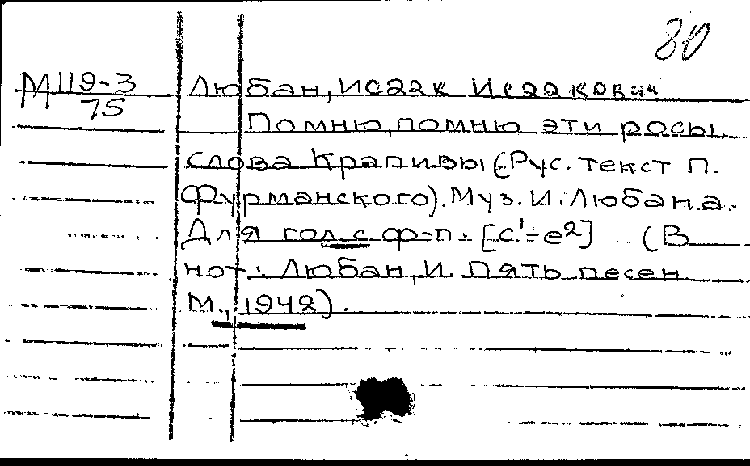 80
М119-3
75
Любан, Исаак Исаакович
Помню, помню эти росы.
Слова Крапивы (Рус. текст П.
Фурманского). Муз. И. Любана.
Для гол. с ф-п. [c¹-e²] (В
нот.: Любан, И. Пять песен.
М., 1942).